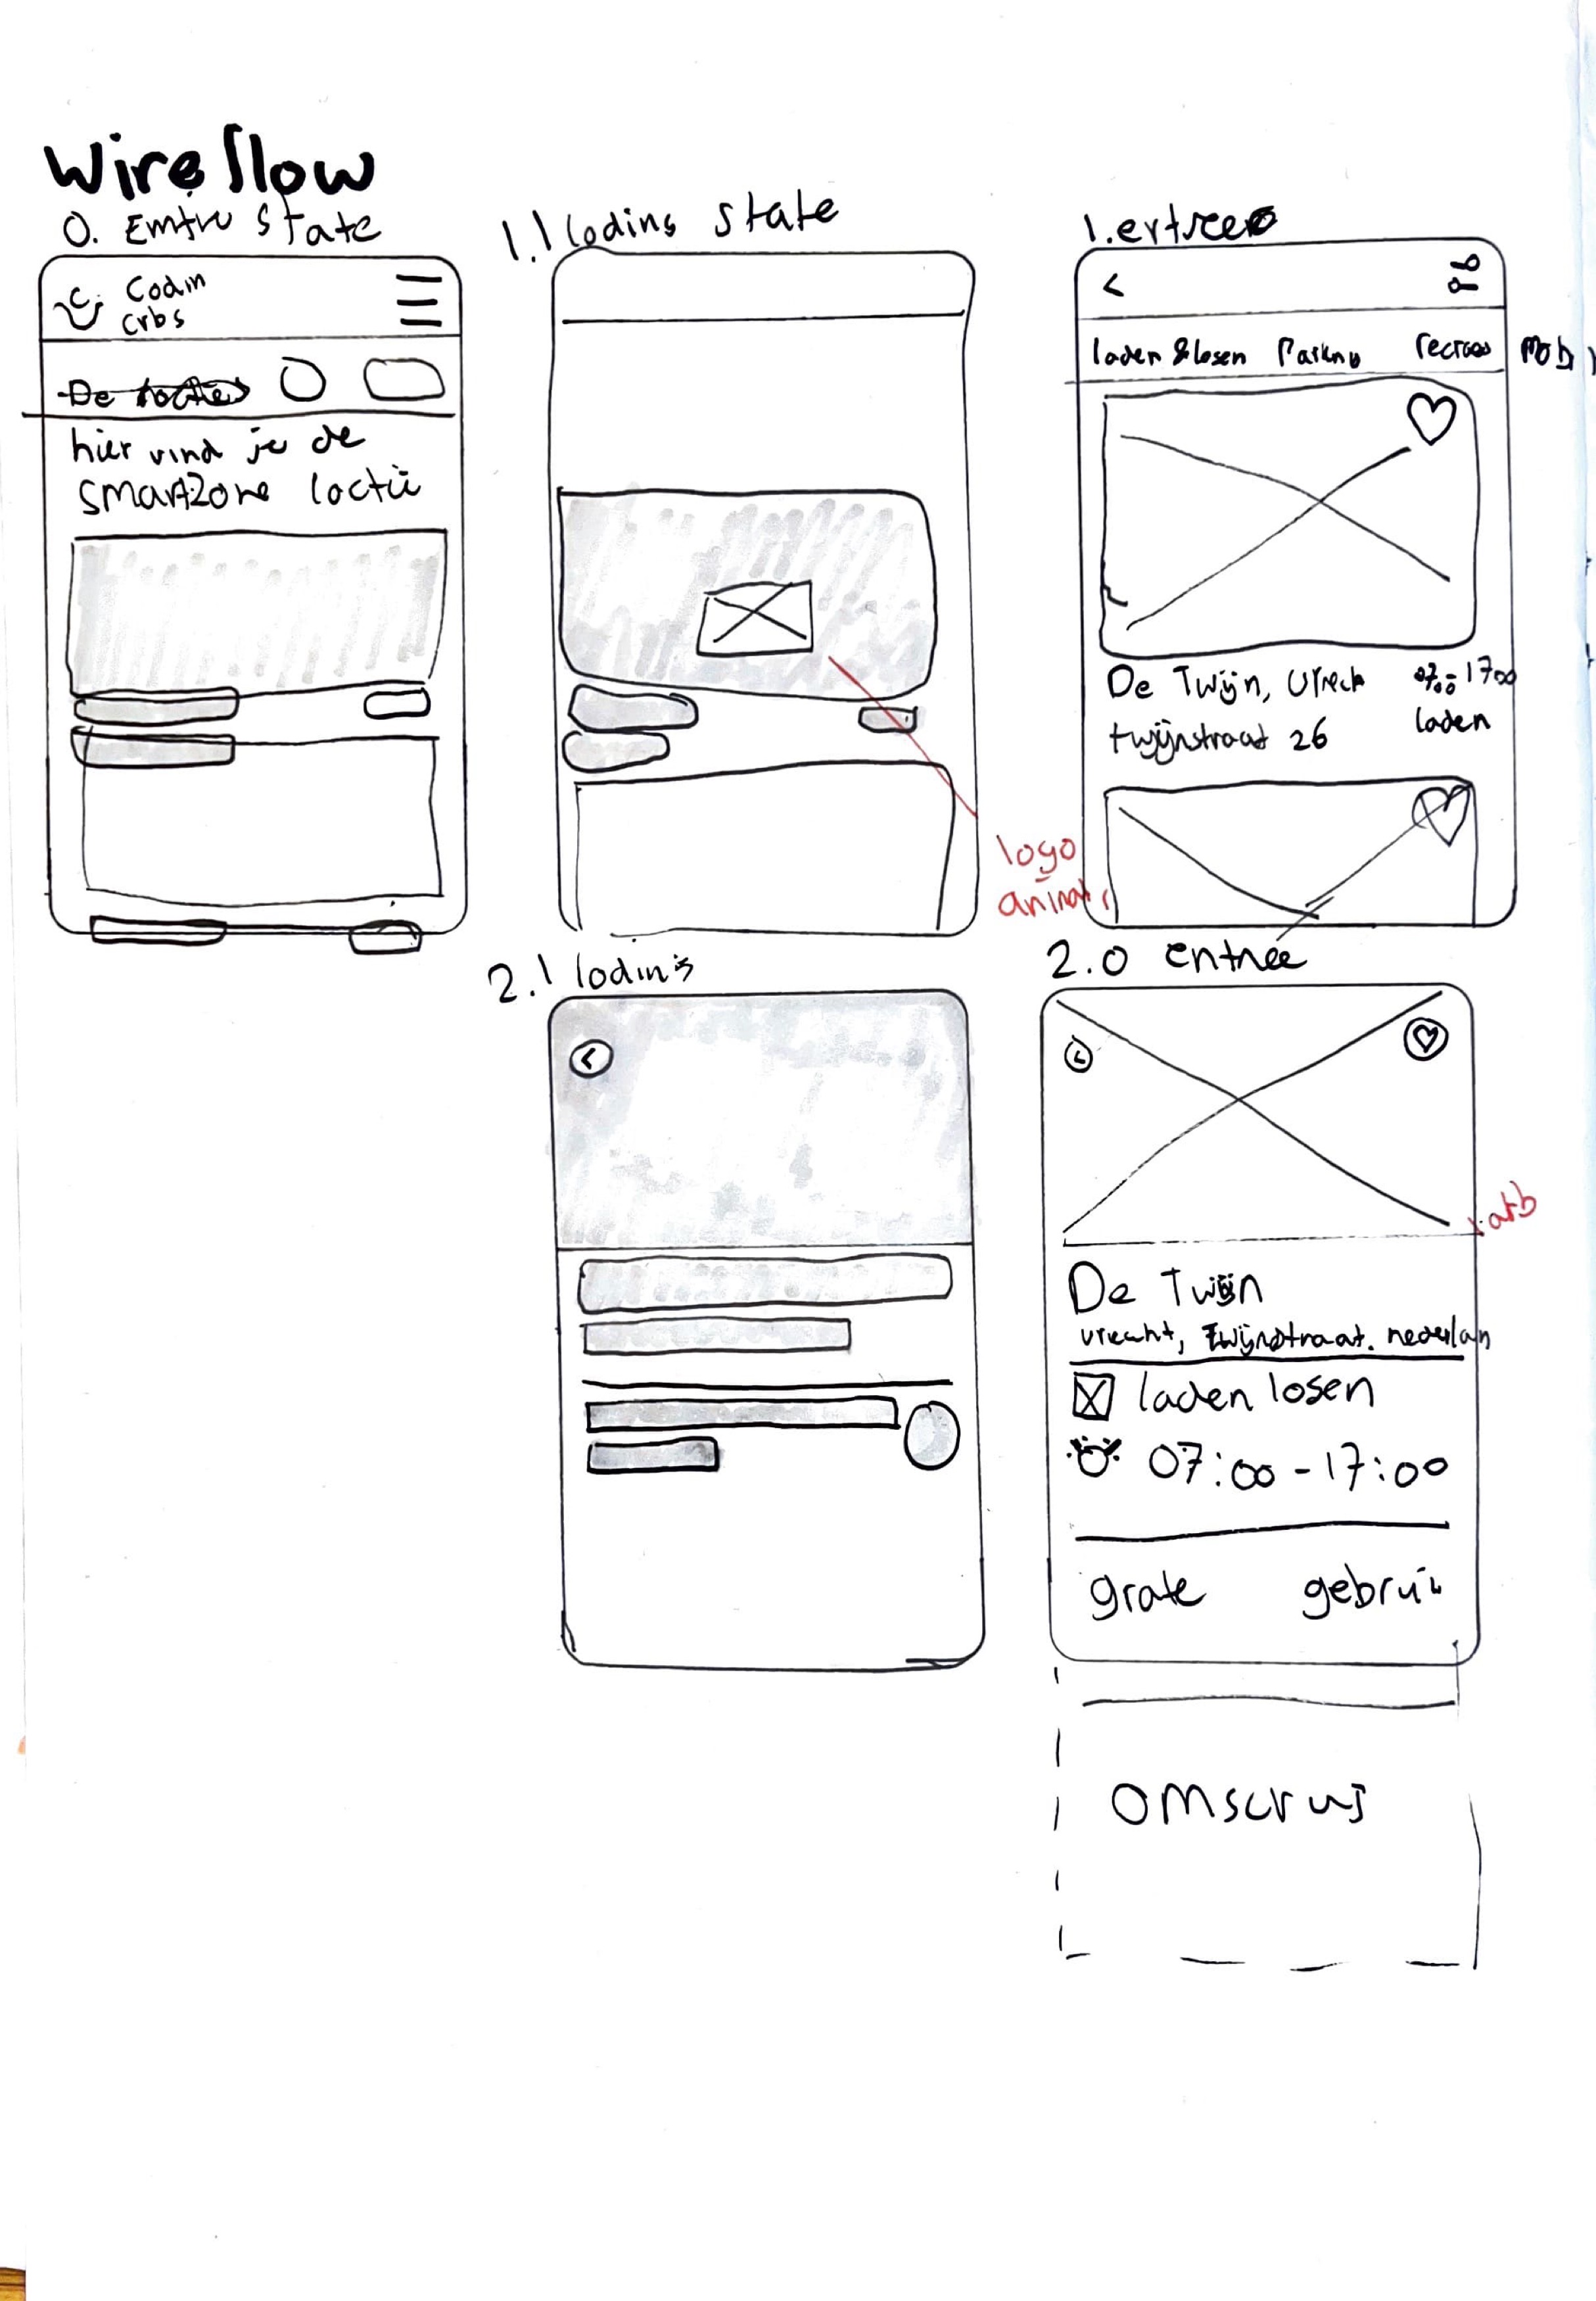 Wireflow
0. Emtw State
Codin
Crbs
hier vind je de
SmartZone loctii
1.1 loding state
logo
animati
1. entree
<
laden & losen Parkng recreas Mobi
De Twijn, Utrech 07:00-1700
twijnstraat 26 laden
2.1 loding
<
2.0 entree
De Twijn
Utrecht, Twijnstraat. nederlan
laden losen
07:00-17:00
grote gebrui
omscrij